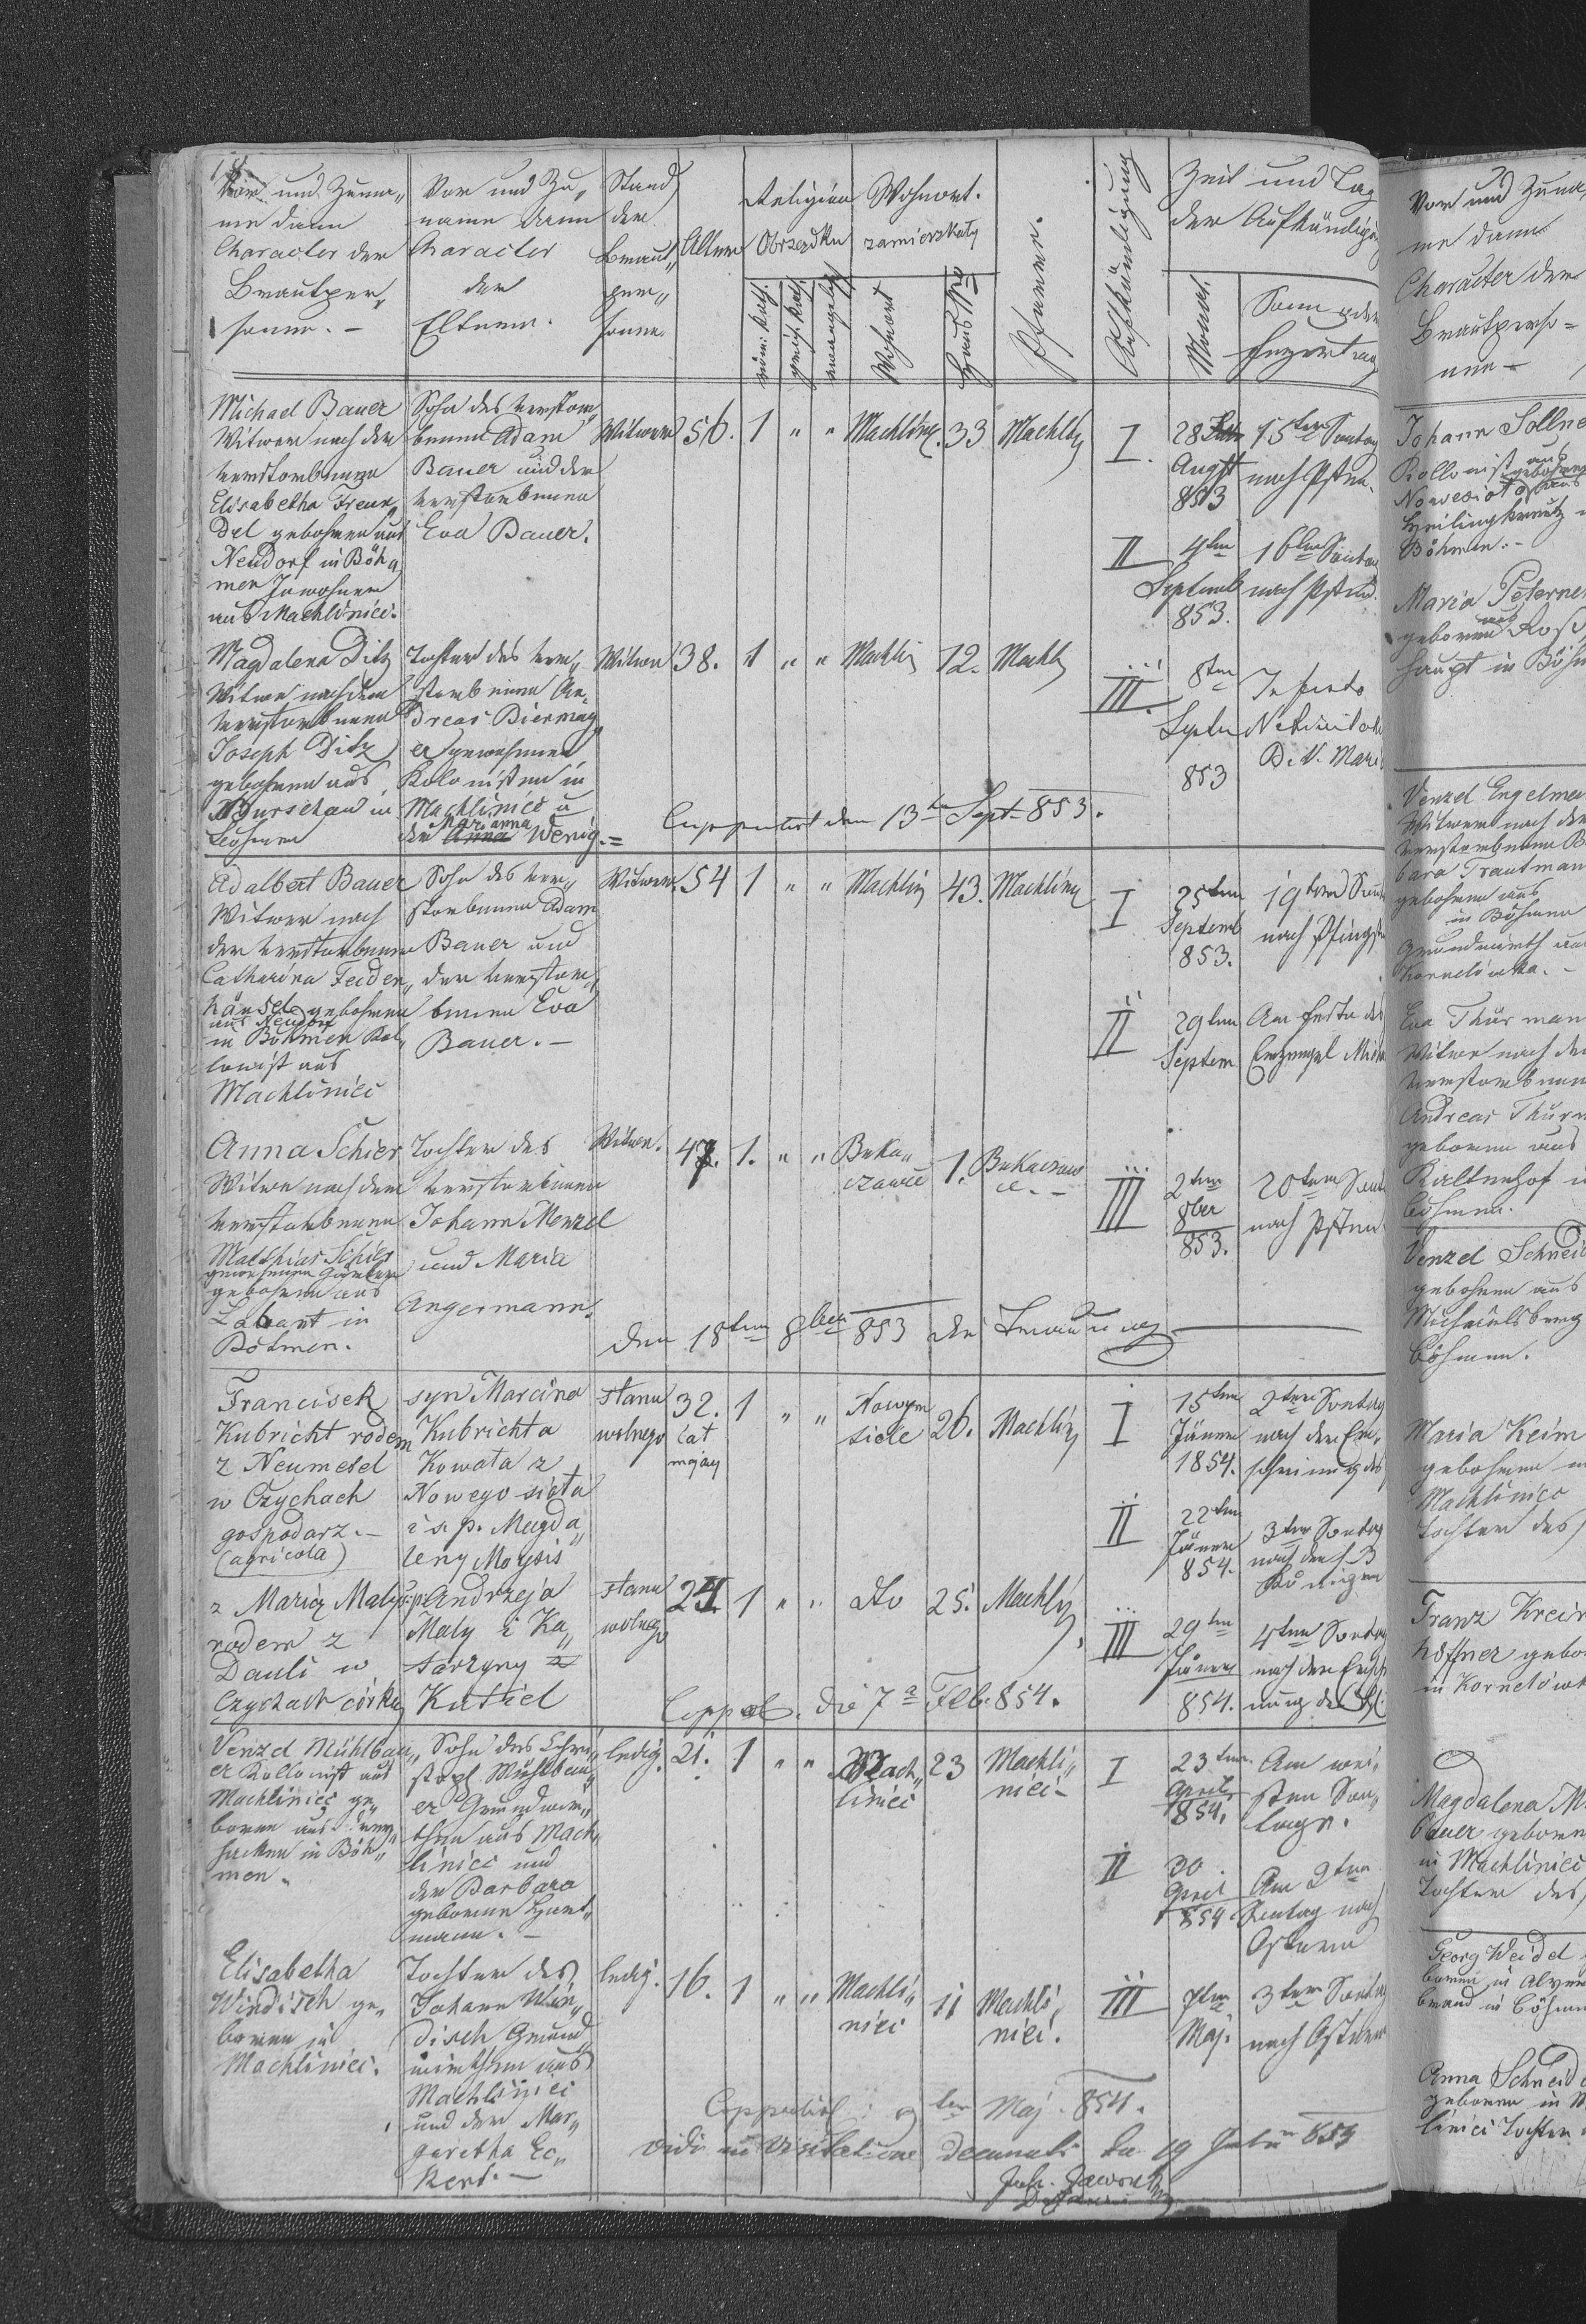 Vor und Zuna„
me dann
Character der
Brautper„
sonen. –
Vor und Zu„
name dann
Character
der
Eltern.
Stand
der
Braut„
per„
sonen
Alter
Religion
Obrządku
röm. kat.
griech. kat.
evangelisch
Wohnort.
zamieszkały
Wohnort
Haus Nro
Pfarrei.
Aufkündigung
Zeit und Tag
der Aufkündigung
Monat.
Sonn oder
Feyertag
Michael Bauer
Witwer nach der
verstorbenen
Elisabetha Freun„
del gebohren aus
Neudorf in Böh„
men Inwohner
aus Machliniec.
Sohn des verstor„
benen Adam
Bauer und der
verstorbenen
Eva Bauer.
Witwer 56. 1 " " Machlinz. 33 Machlinz
I. 28
August
853
15ten Sontag
nach Pfsten.
II 4ten
Septemb
853.
16ten Sontag
nach Pfsten.
Magdalena Ditz
Witwe nach dem
verstorbenen
Joseph Ditz
gebohren aus
in
Böhmen
Tochter des ver„
storbenen An„
dreas Biermay„
er gewesenen
Kolonisten in
Machliniec u
der Marianna Wenig. =
Witwe 38. 1 " " Machlin 12. Machlz
III. 8ten
Septem
853
In festo
Nativitatis
B. V. Mari
Coppulirt den 13ten Sept 853.
Adalbert Bauer
Witwer nach
der verstorbenen
Catharina Feder„
hänsel gebohren
aus Neudorf
in Böhmen Kol„
lonist aus
Machliniec
Sohn des ver„
storbenen Adam
Bauer und
der verstor„
benen Eva
Bauer. –
Witwer 54 1 " " Machlin 43. Machlinz
I 25ten
Septemb
853.
19ten Sont
nach Pfingsten
II 29ten
Septem
Am Feste des
Erzengel Mich
Anna Schier
Witwe nach dem
verstorbenen
Matthias Schier
gewesenen
gebohren aus
Labant in
Böhmen.
Tochter des
verstorbenen
Johann Menzel
und Maria
Angermann.
Witwe. 47. 1. " " Buka„
czowce 1. Bukaczow
ce. –
III 2ten
8ber
853.
20ten Sont
nach Pfsten
den 18ten 8ber 853 die Trauung
Francisek
Kubricht rodem
z Neumetel
w Czychach
gospodarz. –
(agricola)
syn Marcina
Kubrichta
Kowala z
Nowego sioła
i s. p. Magda„
leny Moysis
stanu
wolnego
32.
lat
mający
1 " " Nowym
siole 26. Machlinz
I 15ten
Jäner
1854.
2ten Sontag
nach der Er„
scheinung des
II 22ten
Jäner
854.
3ten Sontag
nach den h. 3
Königen
z Maryą Maly
rodem z
Dauli w
Czychach córką
s. p. Andrzeja
Maly i Ka„
tarzyny z
Kutiel
stanu
wolnego
24 1 " " dto 25. Machlinz
III 29ten
Jäner
854.
4ten Sontag
nach der Erschei
nung des H.
Coppul. die 7a Feb. 854.
Venzel Mühlbau„
er Kollonist aus
Machliniec ge„
boren aus
in Böh„
men.
Sohn des Chri„
stoph Mühlbau„
er Grundwir„
then aus Mach„
liniec und
der Barbara
geborene Hart„
mann. –
ledig. 21. 1 " " Mach„
liniec 23 Machli„
niec –
I 23ten
April
1854.
Am wei„
sten Son„
tage.
II 30.
April
854
Am 2ten
Sontag nach
Ostern
Elisabetha
Windisch ge„
boren in
Machliniec.
Tochter des
Johann Win„
disch Grund„
wirthen aus
Machliniec
und der Mar„
garetha Ec„
kert. –
ledig. 16. 1 " " Machli„
niec 11 Machli„
niec.
III 7ten
Maj.
3ten Sontag
nach Ostern
Coppulirt: 9ten Maj. 854.
Vidi in Visitatione Decanali die 19
Vor und Zuna„
me dann
Character der
Brautperso=
nen –
Johann Sollne
Kollonist aus
gebohren
Nowesioło aus
Heilingkreutz in
Böhmen. –
Maria Peterne
geboren aus Roß„
haupt in Böhm
Venzel Engelme
Witwer nach der
verstorbenen Ba
bara Trautman
gebohren aus
in Böhmen
Grundwirth aus
Kornelówka. –
Eva Thürman
Witwe nach dem
verstorbenen
Andreas Thürm
geboren aus
Kaltenhof in
Böhmen.
Venzel Schneid
gebohren aus
Michaelsberg
Böhmen.
Maria Keim
gebohren in
Machliniec
Tochter des
Franz Kreir
höffner gebo
in Kornelówk
Magdalena M
bauer geboren
in Machliniec
Tochter des
Georg Weidel
boren in
brand in Böhm
Anna Schneid
geboren in M
liniec Tochter